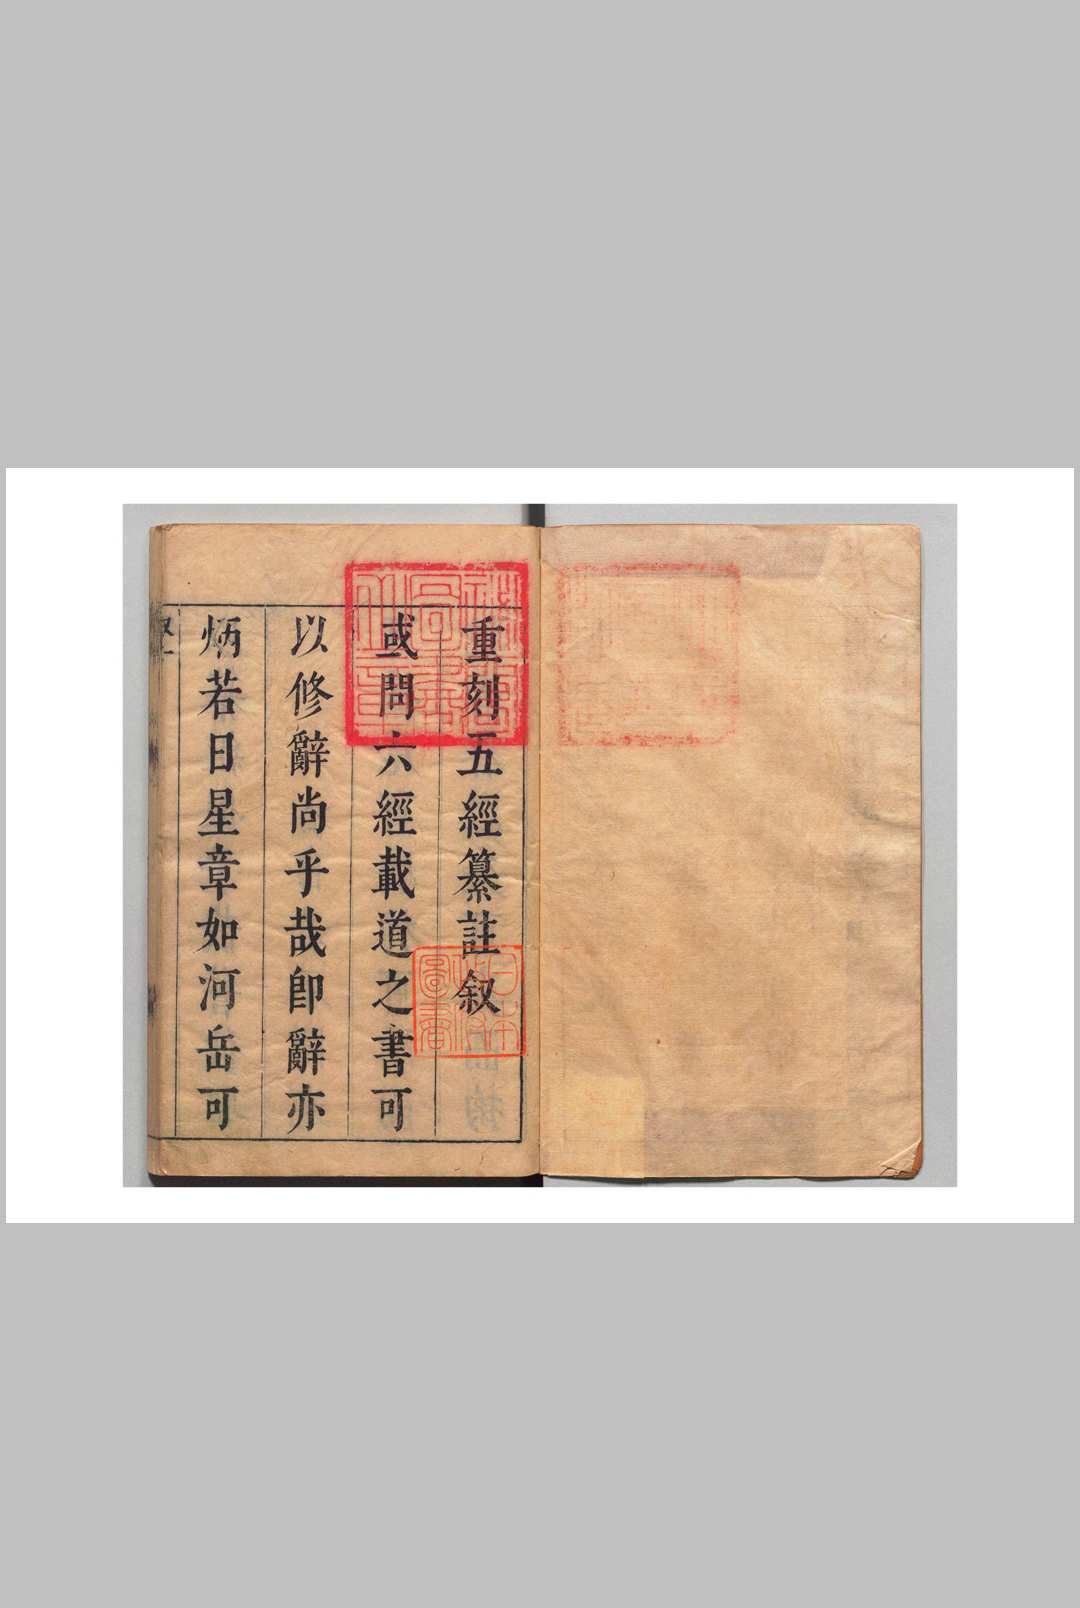 重刻五經纂註叙
或問六經載道之書可
以修辭尚乎哉卽辭亦
炳若日星章如河岳可